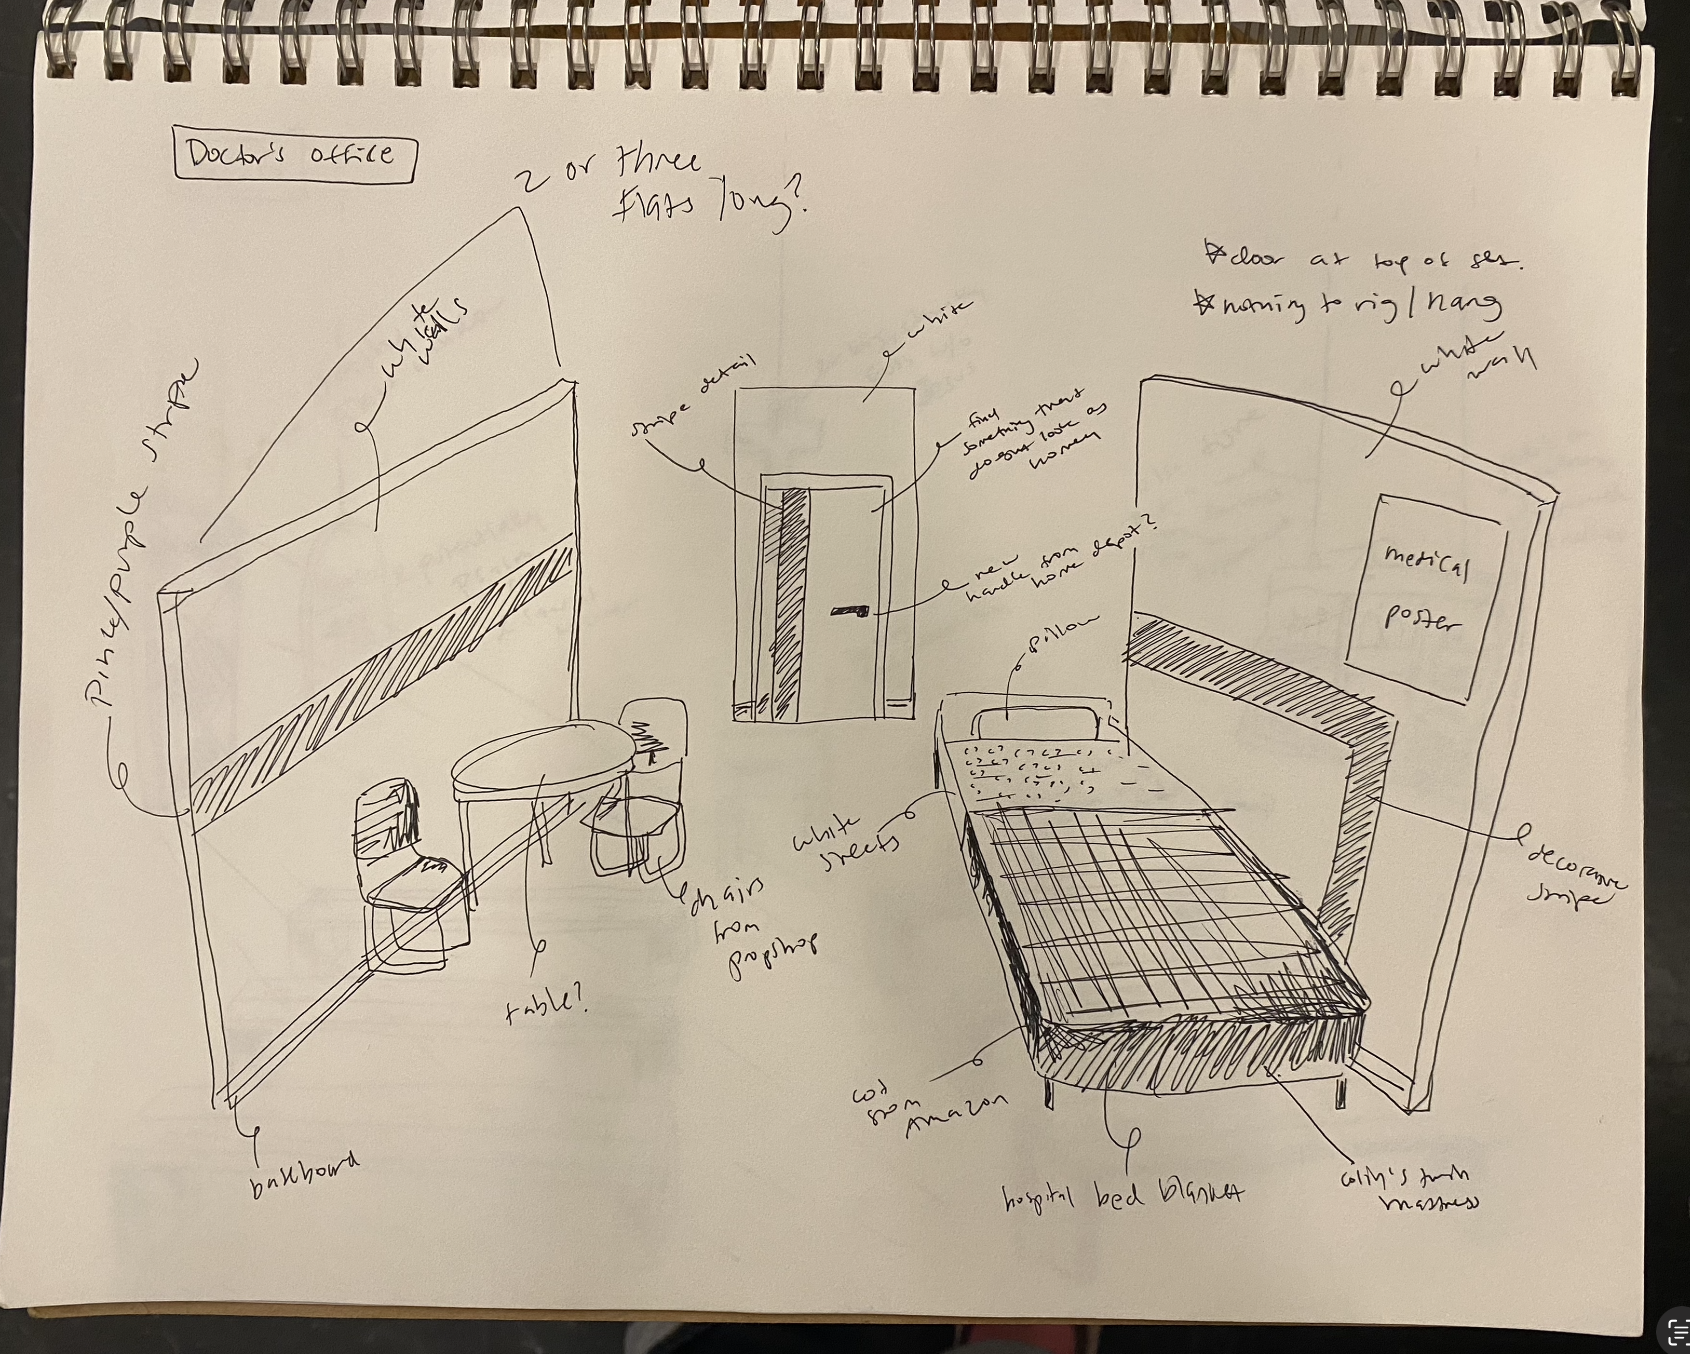 Doctor's office
2 or three
flats long?
☆ door at top of set.
☆ nothing to rig/hang
white
walls
Pink/purple stripe
stripe detail
white
find
something that
doesnt look as
homey
new
handle from
home depot?
white
wall
medical
poster
pillow
white
sheets
decorative
stripe
chairs
from
propshop
table?
baseboard
cot
from
Amazon
hospital bed blanket
mattress